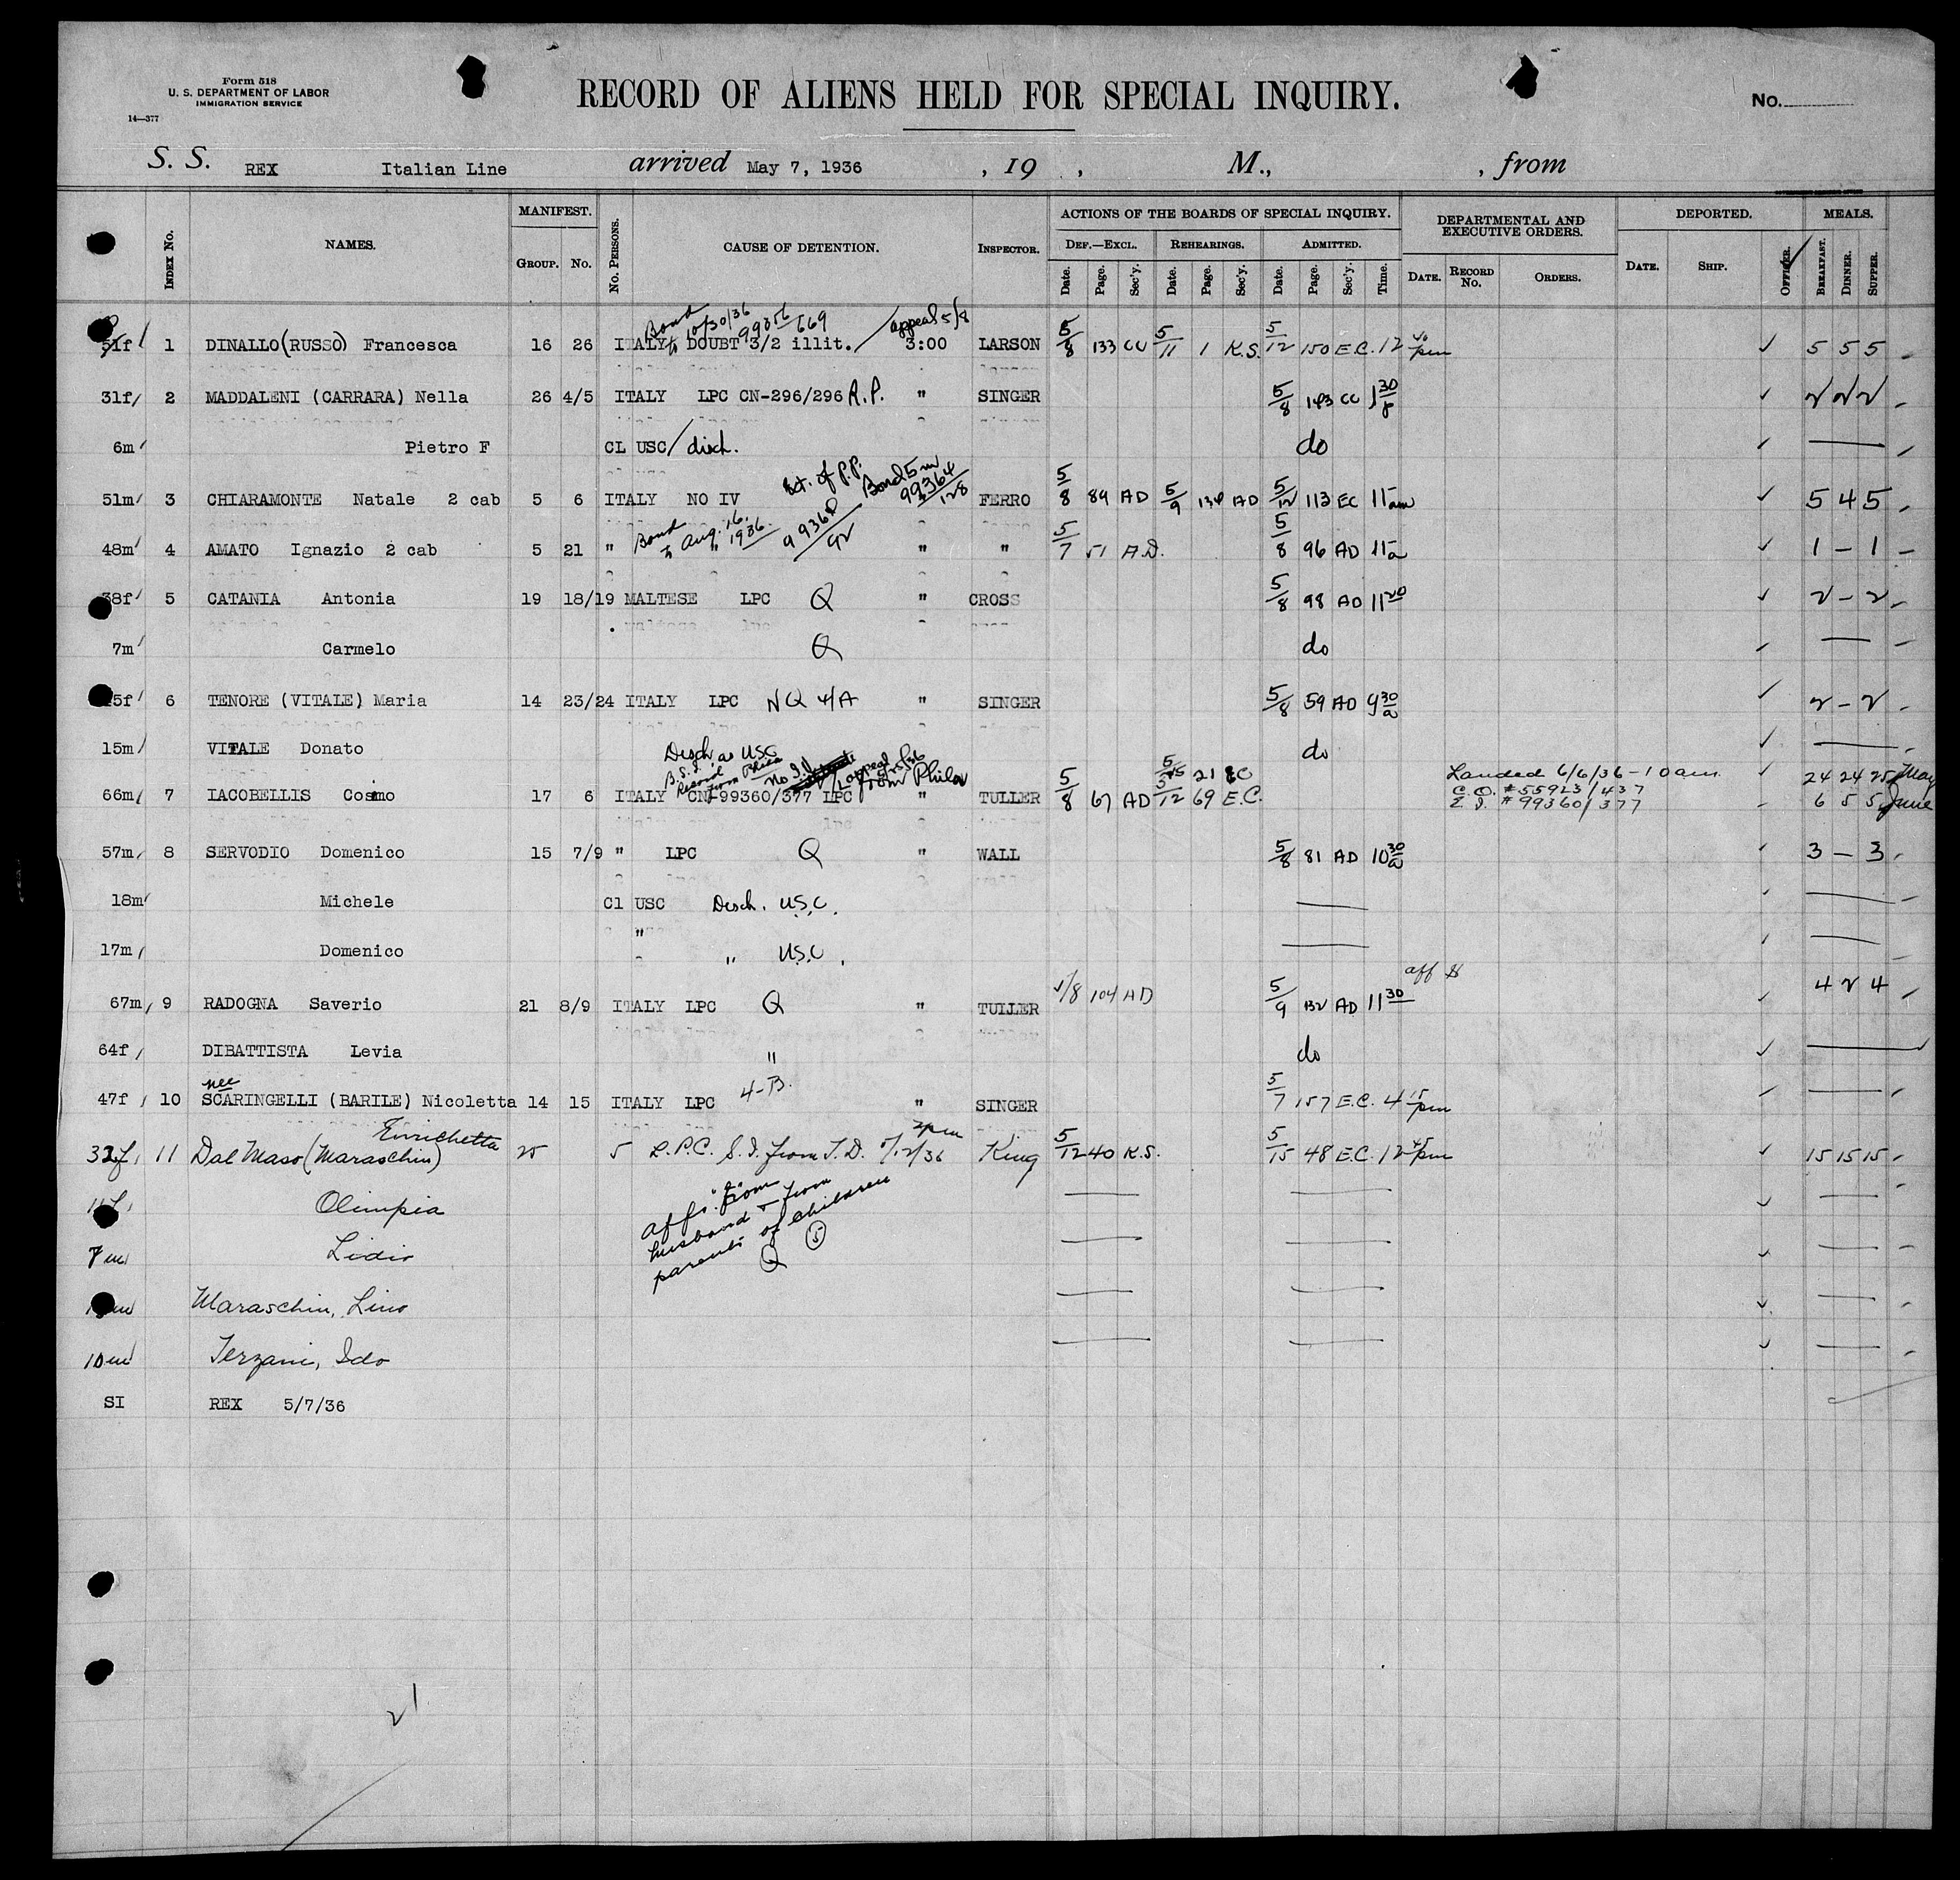 Form 518
U. S. DEPARTMENT OF LABOR
IMMIGRATION SERVICE
14—377
RECORD OF ALIENS HELD FOR SPECIAL INQUIRY.
No.
S. S. REX Italian Line arrived May 7, 1936 , 19 , M., , from
Index No. NAMES. MANIFEST. Group. No. No. Persons. CAUSE OF DETENTION. Inspector. ACTIONS OF THE BOARDS OF SPECIAL INQUIRY. Def.—Excl. Date. Page. Sec'y. Rehearings. Date. Page. Sec'y. Admitted. Date. Page. Sec'y. Time. DEPARTMENTAL AND EXECUTIVE ORDERS. Date. Record No. Orders. DEPORTED. Date. Ship. Officer. MEALS. Breakfast. Dinner. Supper.
Bond to 10/30/36 99356/669 appeal 5/8
51f 1 DINALLO (RUSSO) Francesca 16 26 ITALY DOUBT 3/2 illit. 3:00 LARSON 5/8 133 CC 5/11 1 K.S. 5/12 150 E.C. 12 40 pm 5 5 5
31f 2 MADDALENI (CARRARA) Nella 26 4/5 ITALY LPC CN-296/296 R.P. " SINGER 5/8 143 CC 1 30 p 2 2 2
6m Pietro F CL USC / disch. do
Ext. of P.P. Bond 5m 99364/128
51m 3 CHIARAMONTE Natale 2 cab 5 6 ITALY NO IV FERRO 5/8 89 AD 5/9 134 AD 5/12 113 EC 11 am 5 4 5
Bond to Aug. 16, 1936.
48m 4 AMATO Ignazio 2 cab 5 21 " " " 5/7 51 A.D. 5/8 96 AD 11 a 1 – 1
38f 5 CATANIA Antonia 19 18/19 MALTESE LPC Q " CROSS 5/8 98 AD 11 20 2 – 2
7m Carmelo Q do
5f 6 TENORE (VITALE) Maria 14 23/24 ITALY LPC NQ 4/A " SINGER 5/8 59 AD 9 30 a 2 – 2
15m VITALE Donato do
Disch as USC
B.S.I. Record from Phila No I.V. appeal from Phila 5/15 21 EC Landed 6/6/36 - 10 am. 24 24 25 May
66m 7 IACOBELLIS Cosmo 17 6 ITALY CN-99360/377 LPC " TULLER 5/8 67 AD 5/12 69 E.C. C.O. # 55923/437 6 5 5 June
E.I. # 99360/377
57m 8 SERVODIO Domenico 15 7/9 " LPC Q " WALL 5/8 81 AD 10 30 a 3 – 3
18m Michele Cl USC Disch. U.S.C.
17m Domenico " " U.S.C.
aff
67m 9 RADOGNA Saverio 21 8/9 ITALY LPC Q " TULLER 5/8 104 AD 5/9 132 AD 11 30 4 2 4
64f DIBATTISTA Levia " do
nee 4-B.
47f 10 SCARINGELLI (BARILE) Nicoletta 14 15 ITALY LPC " SINGER 5/7 157 E.C. 4 15 pm
Enrichetta 2pm
32f 11 Dal Maso (Maraschin) 25 5 L.P.C. S.I. from T.D. 5/12/36 King 5/12 40 K.S. 5/15 48 E.C. 12 45 pm 15 15 15
11f Olimpia
affs. from
husband – from
parents of children
Q 5
7m Lidio
m Maraschin, Lino
10m Terzani, Ido
SI REX 5/7/36
21